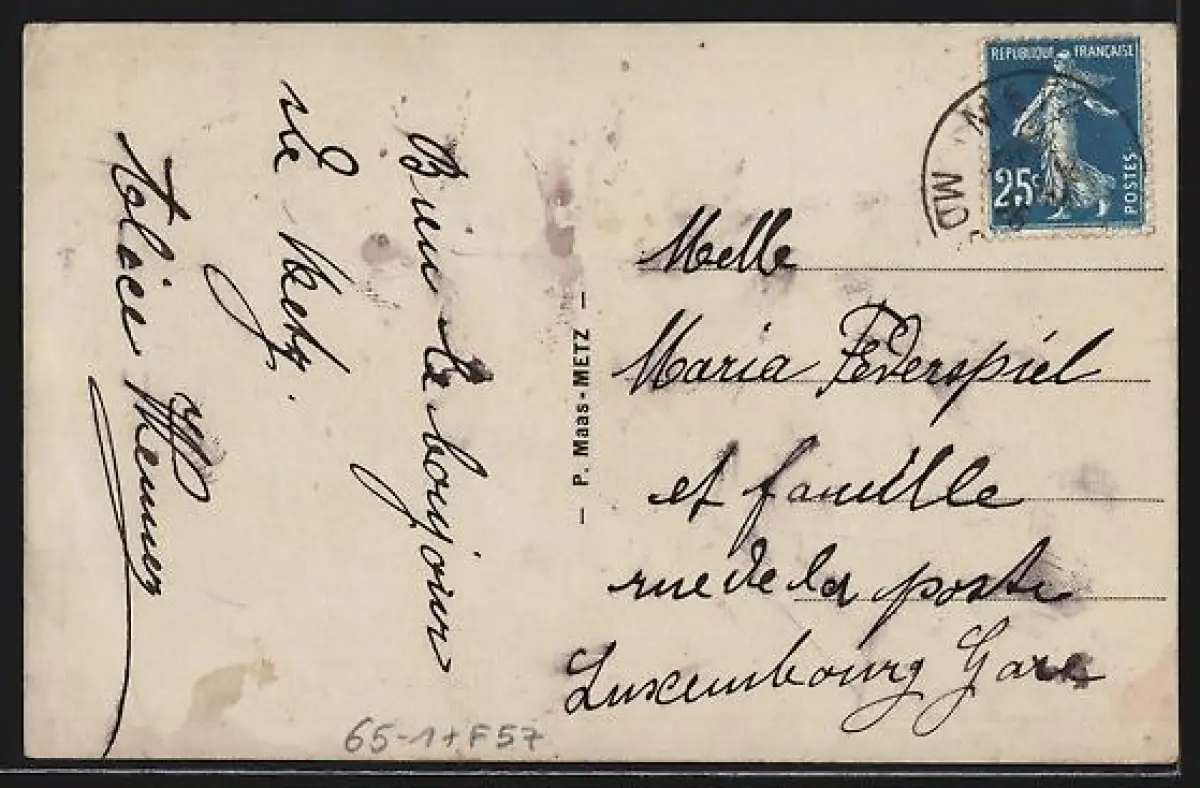 Bien le bonjour
de Metz.
Wemer
REPUBLIQUE FRANÇAISE
25c
POSTES
M
MO
– P. Maas-METZ –
Melle
Maria Federspiel
et famille
rue de la poste
Luxembourg Gare
65-1+F57